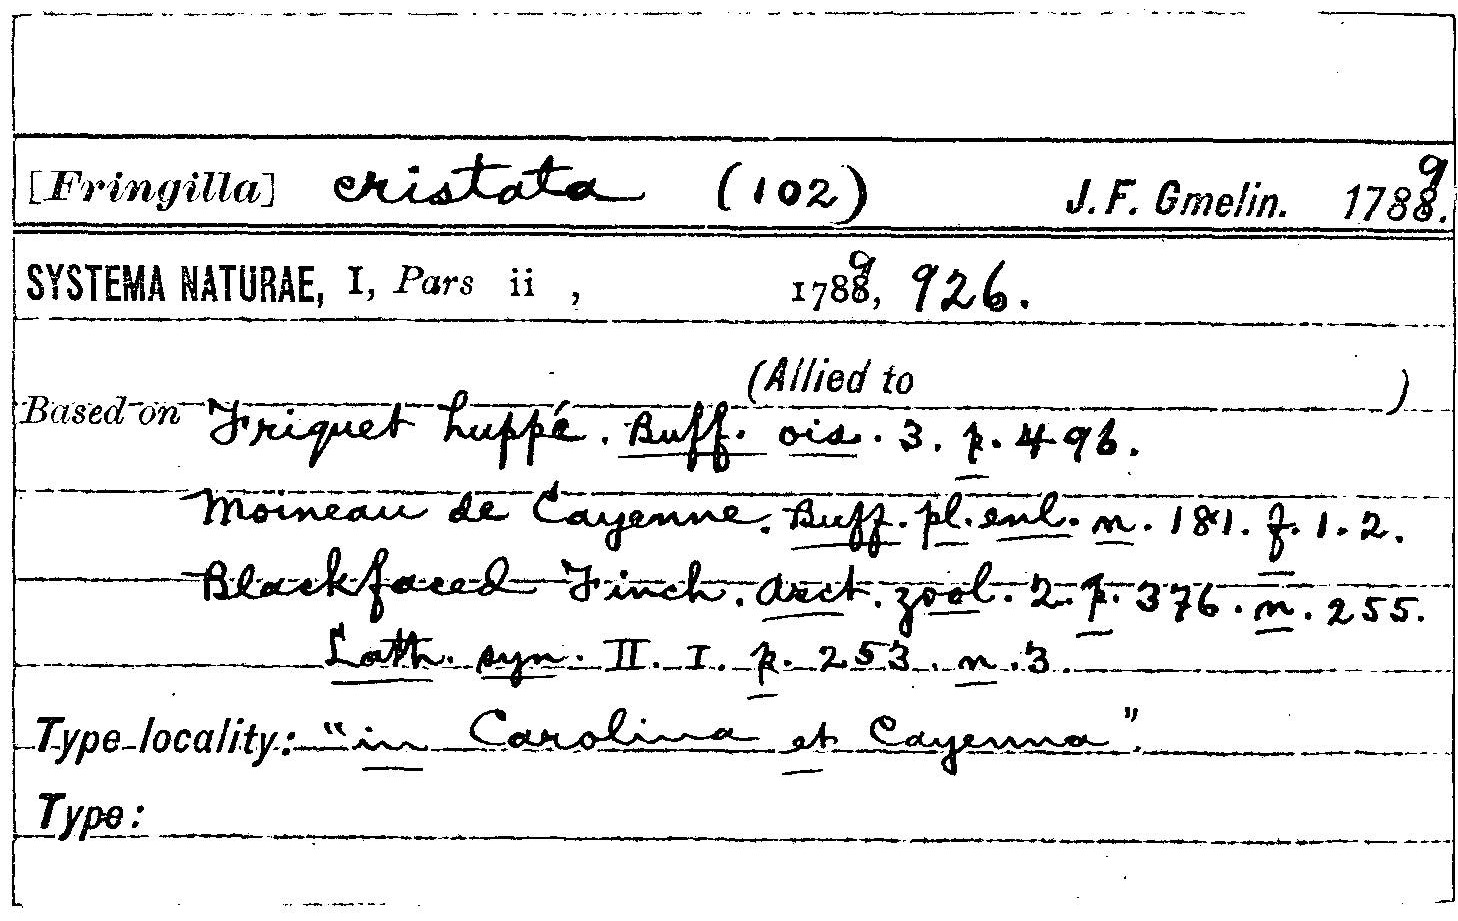 [Fringilla] cristata (102) J. F. Gmelin. 1789.
SYSTEMA NATURAE, I, Pars ii , 1789, 926.
(Allied to )
Based on Friquet huppé. Buff. ois. 3. p. 496.
Moineau de Cayenne. Buff. pl. enl. n. 181. f. 1. 2.
Blackfaced Finch. Arct. zool. 2. p. 376. n. 255.
Lath. syn. II. I. p. 253. n. 3.
Type locality: "in Carolina et Cayenna".
Type: